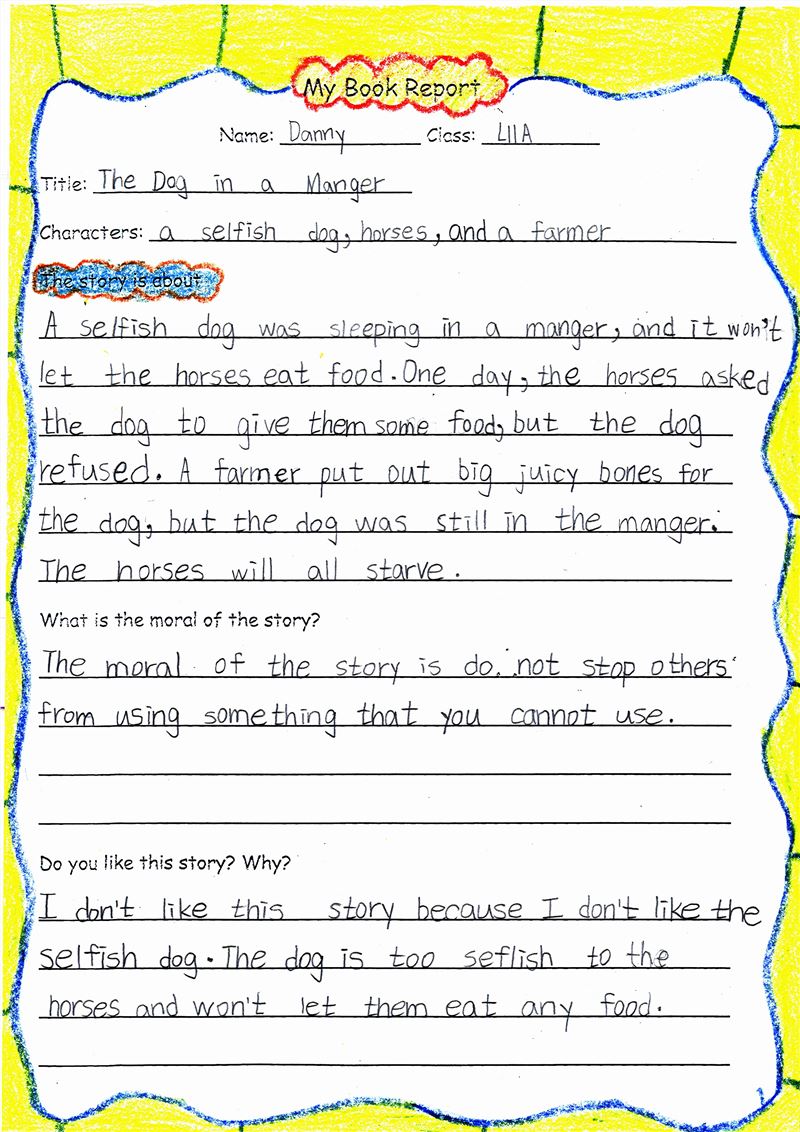 My Book Report
Name: Danny Class: L11A
Title: The Dog in a Manger
Characters: a selfish dog, horses, and a farmer
The story is about
A selfish dog was sleeping in a manger, and it won't
let the horses eat food. One day, the horses asked
the dog to give them some food, but the dog
refused. A farmer put out big juicy bones for
the dog, but the dog was still in the manger.
The horses will all starve.
What is the moral of the story?
The moral of the story is do not stop others
from using something that you cannot use.
Do you like this story? Why?
I don't like this story because I don't like the
selfish dog. The dog is too seflish to the
horses and won't let them eat any food.